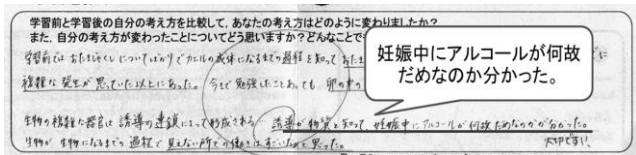 学習前と学習後の自分の考え方を比較して、あなたの考え方はどのように変わりましたか?
また、自分の考え方が変わったことについてどう思いますか?どんなことで
学習前では おたまじゃくし についてばかりで カエルの成体になるまでの過程を知って
妊娠中にアルコールが何故
だめなのか分かった。
複雑な発生が 思っていた以上にあった。今まで勉強したことあっても、卵の中の
生物の複雑な器官は 誘導の連鎖によって形成される 誘導が物質と知って、妊娠中にアルコールが何故だめなのかが分かった。
生物が生物になるまでの過程で見えない所での働きはすごいなと思った。 大切です!